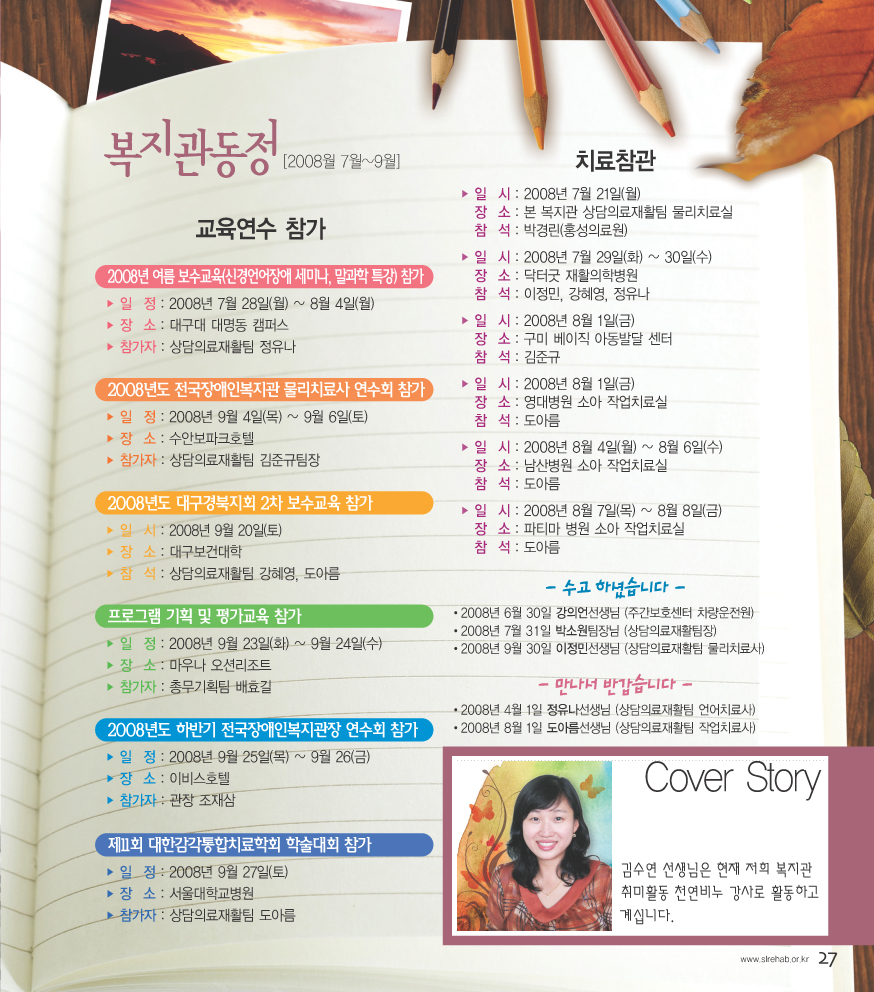 복지관동정 [2008월 7월~9월]
교육연수 참가
2008년 여름 보수교육(신경언어장애 세미나, 말과학 특강) 참가
▶ 일 정 : 2008년 7월 28일(월) ~ 8월 4일(월)
▶ 장 소 : 대구대 대명동 캠퍼스
▶ 참가자 : 상담의료재활팀 정유나
2008년도 전국장애인복지관 물리치료사 연수회 참가
▶ 일 정 : 2008년 9월 4일(목) ~ 9월 6일(토)
▶ 장 소 : 수안보파크호텔
▶ 참가자 : 상담의료재활팀 김준규팀장
2008년도 대구경북지회 2차 보수교육 참가
▶ 일 시 : 2008년 9월 20일(토)
▶ 장 소 : 대구보건대학
▶ 참 석 : 상담의료재활팀 강혜영, 도아름
프로그램 기획 및 평가교육 참가
▶ 일 정 : 2008년 9월 23일(화) ~ 9월 24일(수)
▶ 장 소 : 마우나 오션리조트
▶ 참가자 : 총무기획팀 배효길
2008년도 하반기 전국장애인복지관장 연수회 참가
▶ 일 정 : 2008년 9월 25일(목) ~ 9월 26(금)
▶ 장 소 : 이비스호텔
▶ 참가자 : 관장 조재삼
제11회 대한감각통합치료학회 학술대회 참가
▶ 일 정 : 2008년 9월 27일(토)
▶ 장 소 : 서울대학교병원
▶ 참가자 : 상담의료재활팀 도아름
치료참관
▶ 일 시 : 2008년 7월 21일(월)
장 소 : 본 복지관 상담의료재활팀 물리치료실
참 석 : 박경린(홍성의료원)
▶ 일 시 : 2008년 7월 29일(화) ~ 30일(수)
장 소 : 닥터굿 재활의학병원
참 석 : 이정민, 강혜영, 정유나
▶ 일 시 : 2008년 8월 1일(금)
장 소 : 구미 베이직 아동발달 센터
참 석 : 김준규
▶ 일 시 : 2008년 8월 1일(금)
장 소 : 영대병원 소아 작업치료실
참 석 : 도아름
▶ 일 시 : 2008년 8월 4일(월) ~ 8월 6일(수)
장 소 : 남산병원 소아 작업치료실
참 석 : 도아름
▶ 일 시 : 2008년 8월 7일(목) ~ 8월 8일(금)
장 소 : 파티마 병원 소아 작업치료실
참 석 : 도아름
- 수고 하셨습니다 -
• 2008년 6월 30일 강의언선생님 (주간보호센터 차량운전원)
• 2008년 7월 31일 박소원팀장님 (상담의료재활팀장)
• 2008년 9월 30일 이정민선생님 (상담의료재활팀 물리치료사)
- 만나서 반갑습니다 -
• 2008년 4월 1일 정유나선생님 (상담의료재활팀 언어치료사)
• 2008년 8월 1일 도아름선생님 (상담의료재활팀 작업치료사)
Cover Story
김수연 선생님은 현재 저희 복지관
취미활동 천연비누 강사로 활동하고
계십니다.
www.slrehab.or.kr 27